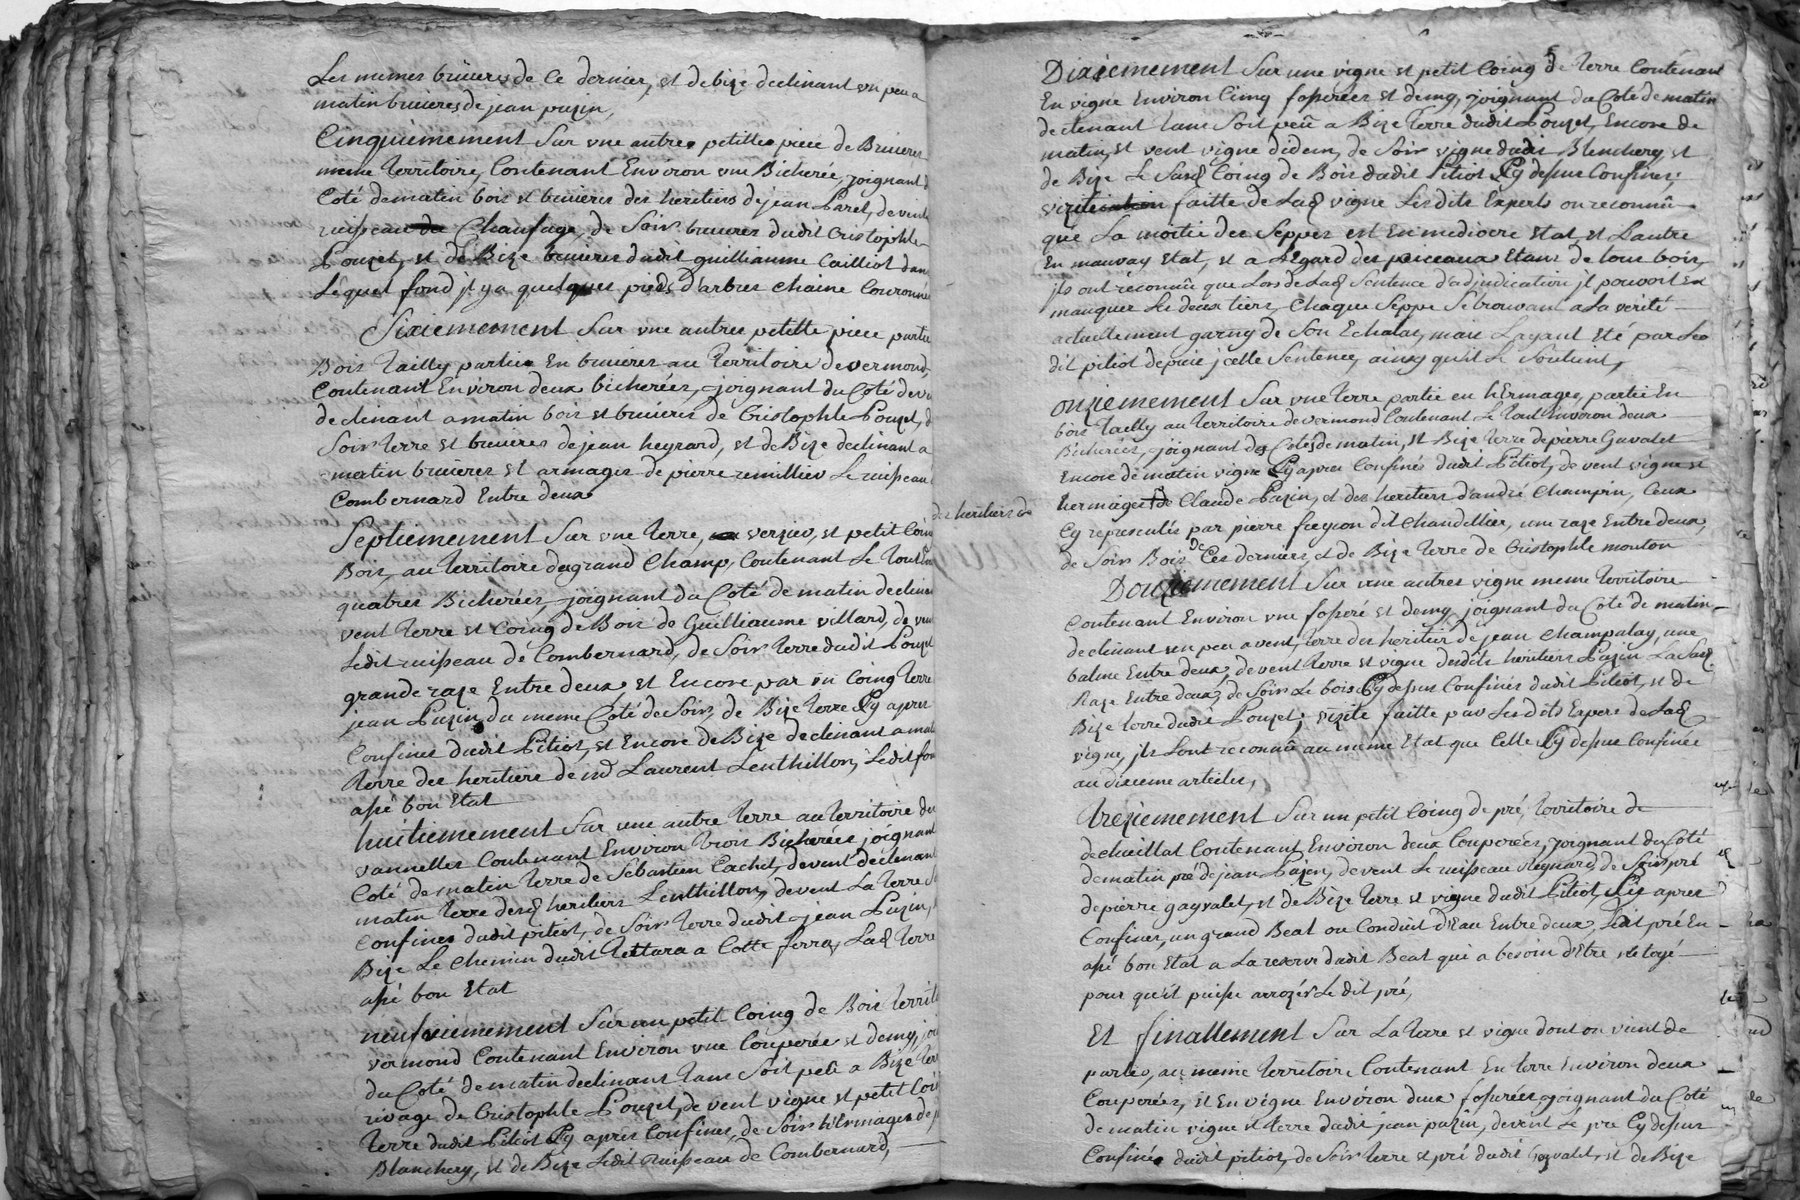 Les memes bruieres de ce dernier, et de bize declinant un peu a
matin bruieres de jean puzin,
Cinquiemement Sur une autre petitte piece de Bruieres
meme Territoire, Contenant Environ une Bicherée, joignant
Coté de matin bois et bruieres des heritiers de jean Paret, de vent
ruisseau Chaufage, de Soir bruieres dudit Cristophle
Pouzet, et de Bize bruieres dudit guilliaume Cailliot dans
Lequel fond jl ya quelques pieds d'arbres chaine Couronnés
Sixiemement Sur une autre petitte piece partie
Bois Tailly partie En bruieres au Territoire de vermond
Contenant Environ deux bicherées, joignant du Coté de
declenant a matin bois et bruieres de Cristophle Pouzet, d
Soir Terre et bruieres de jean heyrard, et de Bize declinant a
matin bruieres et armages de pierre remillier Le ruisseau
Combernard Entre deux
Septiemement Sur une Terre, verjuer, et petit Coin
Bois, au Territoire du grand Champ, Contenant Le Tout
quatres Bicherées, joignant du Coté de matin declinant
vent Terre et Coing de Bois de Guilliaume villard, de vent
Ledit ruisseau de Combernard, de Soir Terre dudit Pouzet
grande raze Entre deux et Encore par un Coing Terre
jean Puzin du meme Coté de Soir, de Bize Terre Cy apres
Confines dudit Pitiot, et Encore de Bize declinant a matin
Terre des heritiers de md Laurent Lenthillon, Ledit fon
assé bon Etat
huitiemement Sur une autre Terre au Territoire des
vannelles Contenant Environ Trois Bicherées joignant
Coté de matin Terre de Sebastien Cachet, de vent declenant
matin Terre desd heritiers Lenthillon, de vent La Terre
Confines dudit pitiot, de Soir Terre dudit jean Puzin,
Bize Le Chemin dudit Tartara a Cotte ferra, Lad Terre
assé bon Etat
neufviemement Sur un petit Coing de Bois Territ
vermond Contenant Environ une Couperée et demy, jo
du Coté de matin declinant Tant Soit peu a Bize Ter
rivage de Cristophle Pouzet, de vent vigne et petit Coi
Terre dudit Pitiot Cy apres Confines, de Soir hermages de
Blanchery, et de Bize Ledit Ruisseau de Combernard,
des heritiers de
Dixiemement Sur une vigne et petit Coing de Terre Contenant
En vigne Environ Cinq fosserées et demy, joignant du Coté de matin
declenant Tant Soit peu a Bize Terre dudit Pouzet, Encore de
matin, et vent vigne didem, de Soir vigne dudit Blenchery, et
de Bize Le Susd Coing de Bois dudit Pitiot Cy dessus Confines;
vizite faitte de Lad vigne Lesdits Experts on reconnu
que La moitié des Seppes est En mediocre Etat et L'autre
En mauvay Etat, et a L'Egard des paiceaux Etans de tout bois,
jls ont reconnu que Lors de Lad Sentence d'adjudication jl pouvoit En
manquer Les deux tiers, Chaque Seppe Se trouvant a La verité
actuellement garny de Son Echalat, mais L'ayant Eté par Led
dit pitiot depuis jcelle Sentence, ainsy qu'il Le Soutient,
onziemement Sur une Terre partie en hermages, partie En
bois Tailly au Territoire de vermond Contenant Le Tout Environ deux
Bicherées, joignant des Cotés de matin, et Bize Terre de pierre Gavalet
Encore de matin vigne Cy apres Confines dudit Pitiot, de vent vigne et
hermages de Claude Puzin, et des heritiers d'andré Champin, Ceux
Cy representés par pierre freycon dit Chandellier, une raze Entre deux,
de Soir Bois de Ces derniers, et de Bize Terre de Cristophle mouton
Douziemement Sur une autres vigne meme Territoire
Contenant Environ une fosseré et demy, joignant du Coté de matin
declinant un peu a vent, Terre des heritiers de jean Champalay, une
balme Entre deux, de vent Terre et vigne desdits heritiers Puzin La Susd
Raze Entre deux, de Soir Le bois Cy dessus Confinés dudit Pitiot, et de
Bize Terre dudit Pouzet; vizite faitte par Lesdits Expers de Lad
vigne, jls Lont reconnu au meme Etat que Celle Cy dessus Confinée
au dixieme articles,
Treziemement Sur un petit Coing de pré, Territoire de
Contenant Environ deux Couperées, joignant du Coté
de matin pré de jean Puzin, de vent Le ruisseau Regnard, de Soir pré
de pierre gayvalet, et de Bize Terre et vigne dudit Pitiot, Cy apres
Confines, un grand Beal ou Conduit d'Eau Entre deux, Ledit pré En
assé bon Etat a La reserve dudit Beat qui a besoin d'Etre netoyé
pour qu'il puisse arrozer Le dit pré,
Et finallement Sur La Terre et vigne dont on vient de
parler, au meme Territoire Contenant En terre Environ deux
Couperées, et En vigne Environ deux fosserées, joignant du Coté
de matin vigne et Terre dudit jean puzin, de vent Le pré Cy dessus
Confiné dudit pitiot, de Soir Terre et pré dudit Gayvalet, et de Bize